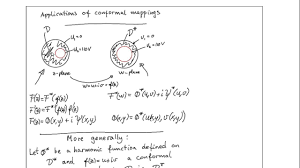 Applications of conformal mappings
D
D*
U₁=0
U₂=10V
U₁=0
U₂=10V
z-plane
w=u+iv=f(z)
w-plane
F(z)=F*(f(z))
F*(w)=Φ*(u,v)+iΨ*(u,v)
F(z)=F*(f(z))
F(z)=Φ(x,y)+iΨ(x,y)
Φ(x,y)=Φ*(u(x,y),v(x,y))
More generally:
Let Φ* be a harmonic function defined on
D* and f(z)=u+iv a conformal